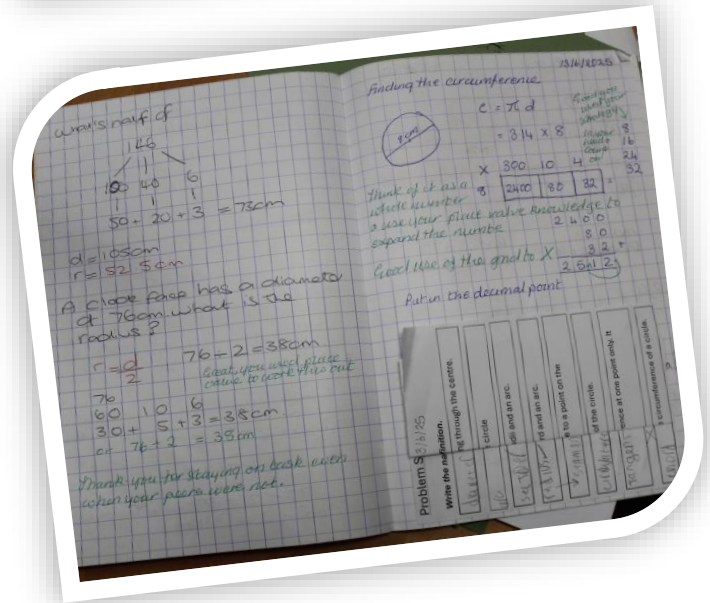 What's half of
146
100 40 6
50 + 20 + 3 = 73cm
d = 105cm
r = 52.5cm
A clock face has a diameter
of 76cm. What is the
radius?
r = d/2 76 ÷ 2 = 38cm
Great, you used place
value to work this out
76
60 10 6
30 + 5 + 3 = 38cm
or 76 ÷ 2 = 38cm
Thank you for staying on task even
when your peers were not.
13/6/2025
Finding the circumference
8cm
C = π d
= 3.14 × 8
Good you
used your
8
16
24
32
X 300 10 4
8 2400 80 32
Think of it as a
whole number
& use your place value knowledge to
expand the number
2400
80
32 +
2512
Good use of the grid to X
Put in the decimal point
Problem S 3/6/25
Write the na
finition.
ng through the centre.
circle
dii and an arc.
rd and an arc.
e to a point on the
of the circle.
ence at one point only. It
circumference of a circle.